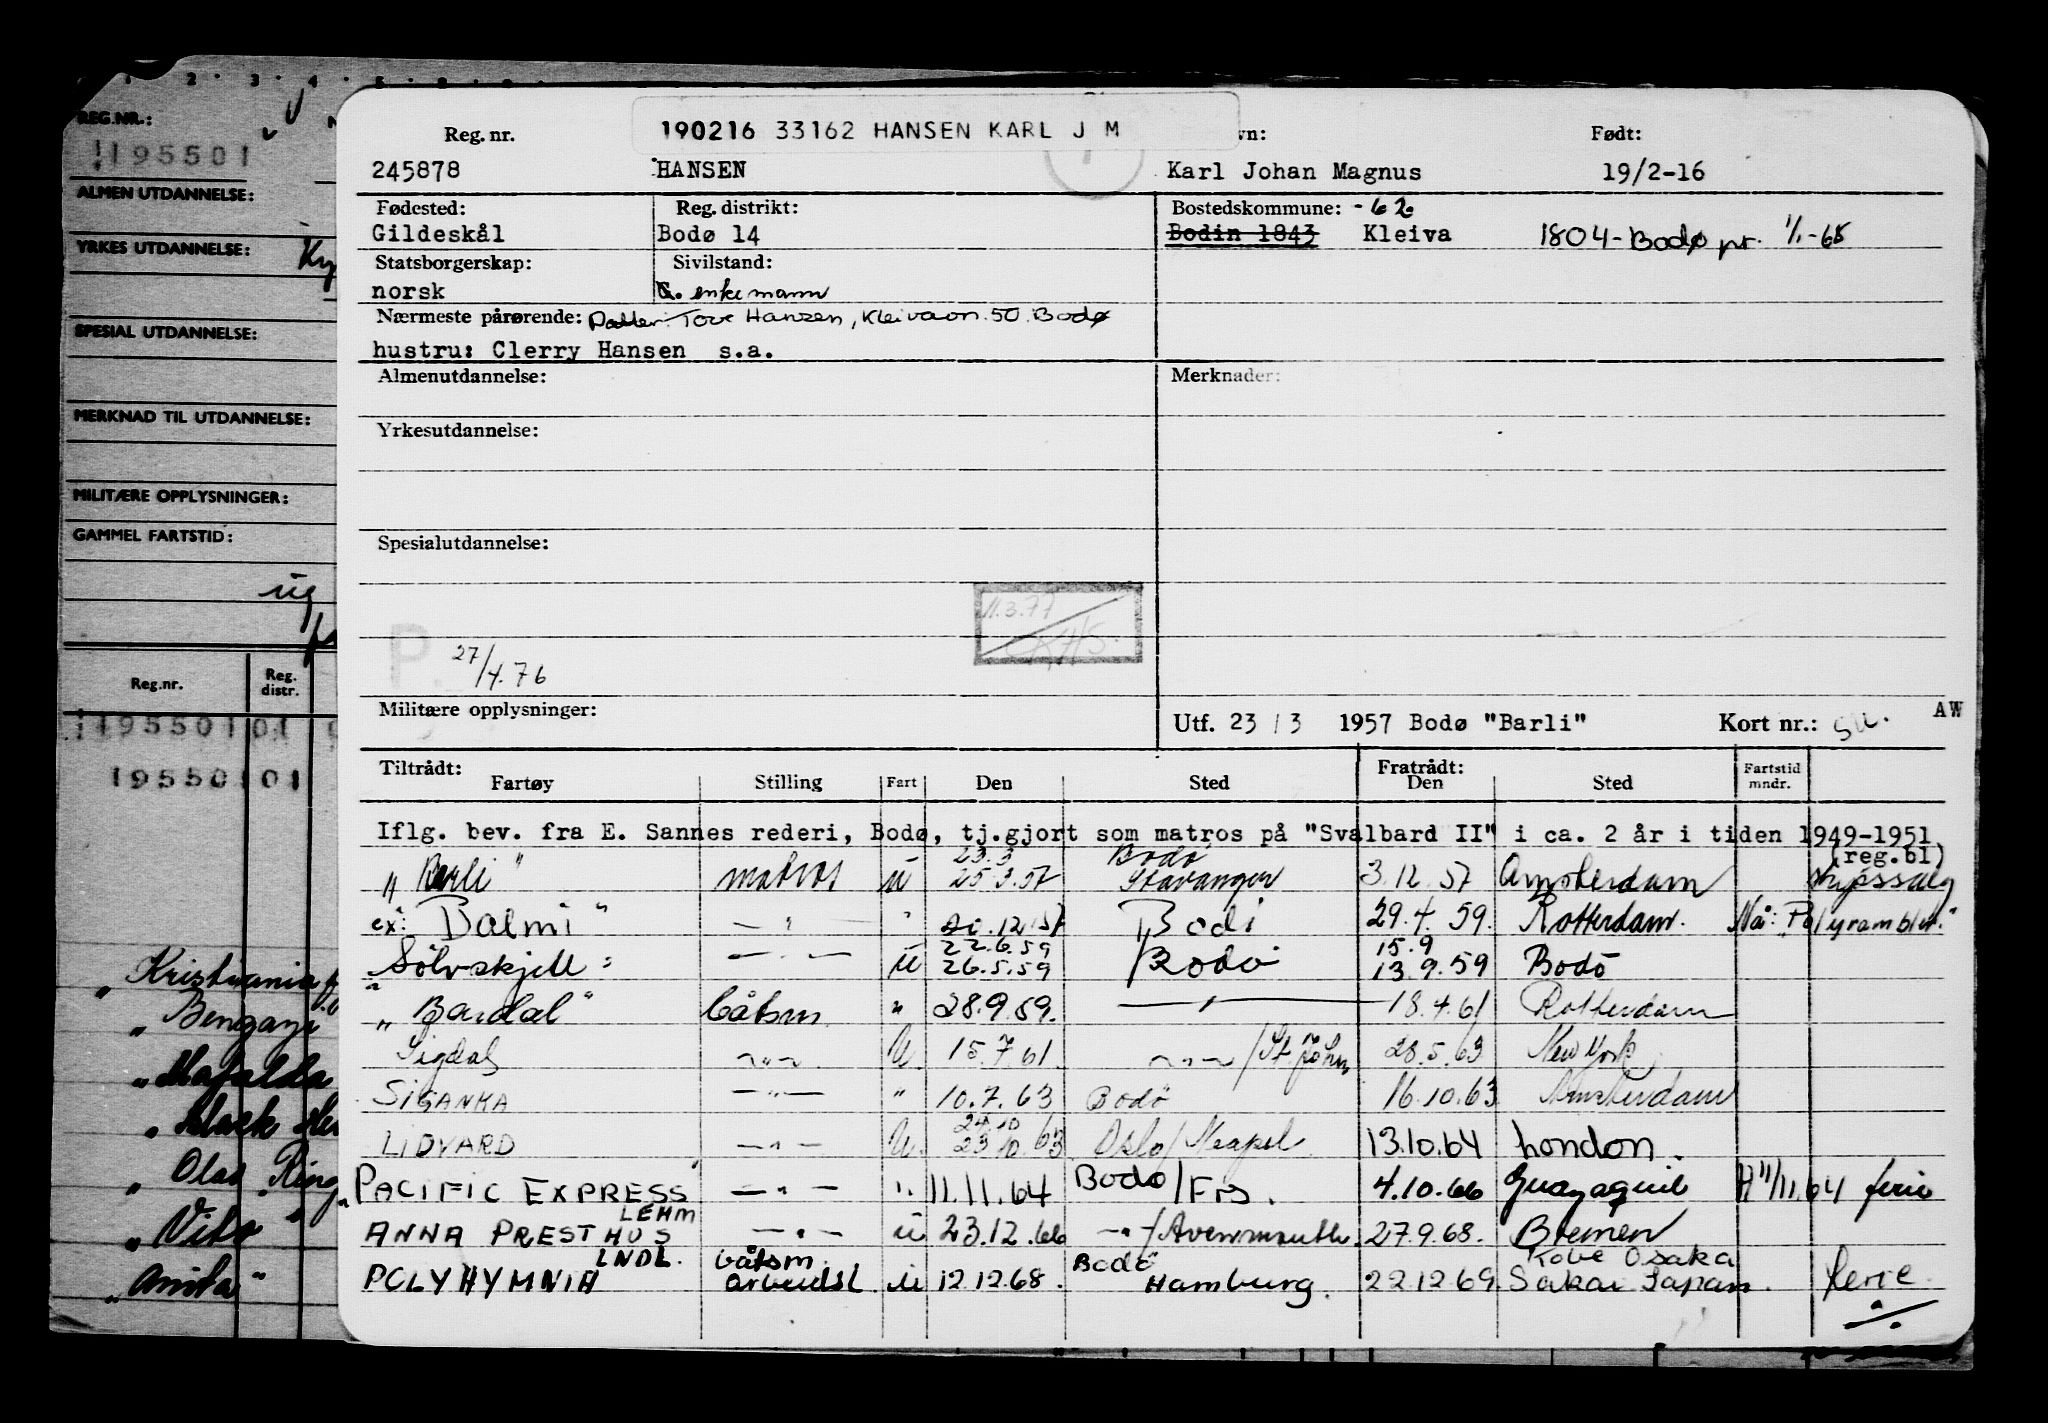 REG.NR.:
195501
ALMEN UTDANNELSE:
YRKES UTDANNELSE:
SPESIAL UTDANNELSE:
MERKNAD TIL UTDANNELSE:
MILITÆRE OPPLYSNINGER:
GAMMEL FARTSTID:
ug
Reg.nr. Reg. distr.
195501 01
195501 01
„ Kristiania
„ Bengazi
„ Mafalda
„ Black
„ Olav Ring
„ Vito
„ Anita "
190216 33162 HANSEN KARL J M
Reg. nr. vn: Født:
245878 HANSEN Karl Johan Magnus 19/2-16
Fødested: Reg. distrikt: Bostedskommune: -62
Gildeskål Bodø 14 Bodin 1843 Kleiva 1804-Bodø pr. 1/1-68
Statsborgerskap: Sivilstand:
norsk G. enkemann
Nærmeste pårørende: Datter: Tove Hansen, Kleivavn. 50. Bodø
hustru: Clerry Hansen s.a.
Almenutdannelse: Merknader:
Yrkesutdannelse:
Spesialutdannelse:
11.3.77
P. 27/4.76
Militære opplysninger: Utf. 23 / 3 1957 Bodø "Barli" Kort nr.: AW
Tiltrådt: Fratrådt:
Fartøy Stilling Fart Den Sted Den Sted Fartstid mndr.
Iflg. bev. fra E. Sannes rederi, Bodø, tj.gjort som matros på "Svalbard II" i ca. 2 år i tiden 1949-1951
(reg.bl)
23.3 Bodø
„ Barli " matros u 25.3.57 Stavanger 3.12.57 Amsterdam
ex: Dalmi " — " — " 12.57 Bodi 29.4.59. Rotterdam. Nå:
22.6.59 15.9
„ Sölvskjell " — " — u 26.5.59 Bodö 13.9.59 Bodö
„ Bardal " båtsm " 28.9.59. — " — 18.4.61 Rotterdam
Sigdal — " — U 15.7.61. — " — / St John 28.5.63 New York
SIGANKA — " — " 10.7.63 Bodö 16.10.63 Amsterdam
24.10
LIDVARD — " — U. 23.10.63 Oslo / Neapel 13.10.64 London.
"PACIFIC EXPRESS" — " — " 11.11.64 Bodö / Frs. 4.10.66 Guayaquil H 11/11.64 ferie
LEHM
ANNA PRESTHUS — " — u 23.12.66 — " — / Avonmouth. 27.9.68. Bremen
LNDL. båtsm. Bodö Kobe Osaka
POLYHYMNIA arbeidsl. u 12.12.68. Hamburg. 22.12.69. Sakai Japan. ferie